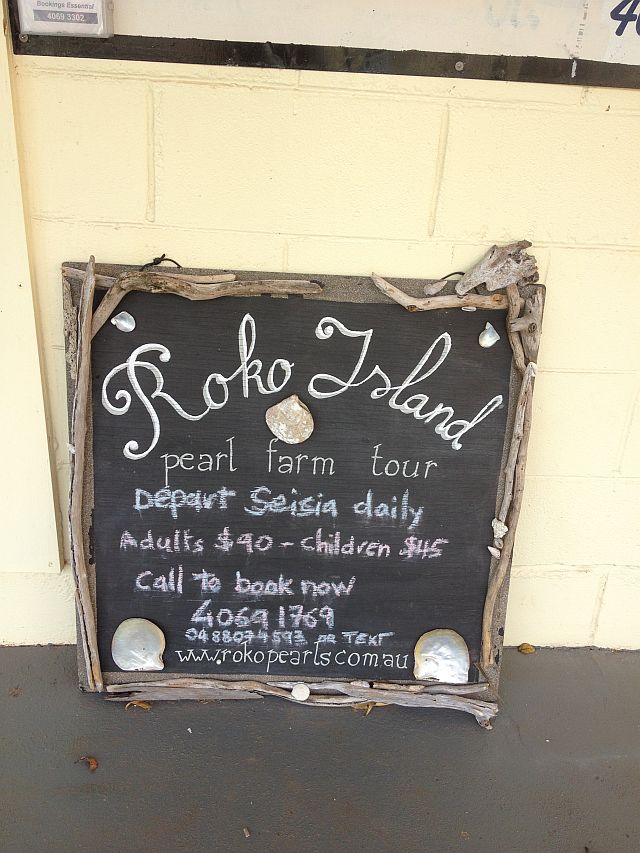 Bookings Essential
4069 3302
Roko Island
pearl farm tour
Depart Seisia daily
Adults $90 - children $45
Call to book now
40691769
0488074593 or TEXT
www.rokopearls.com.au